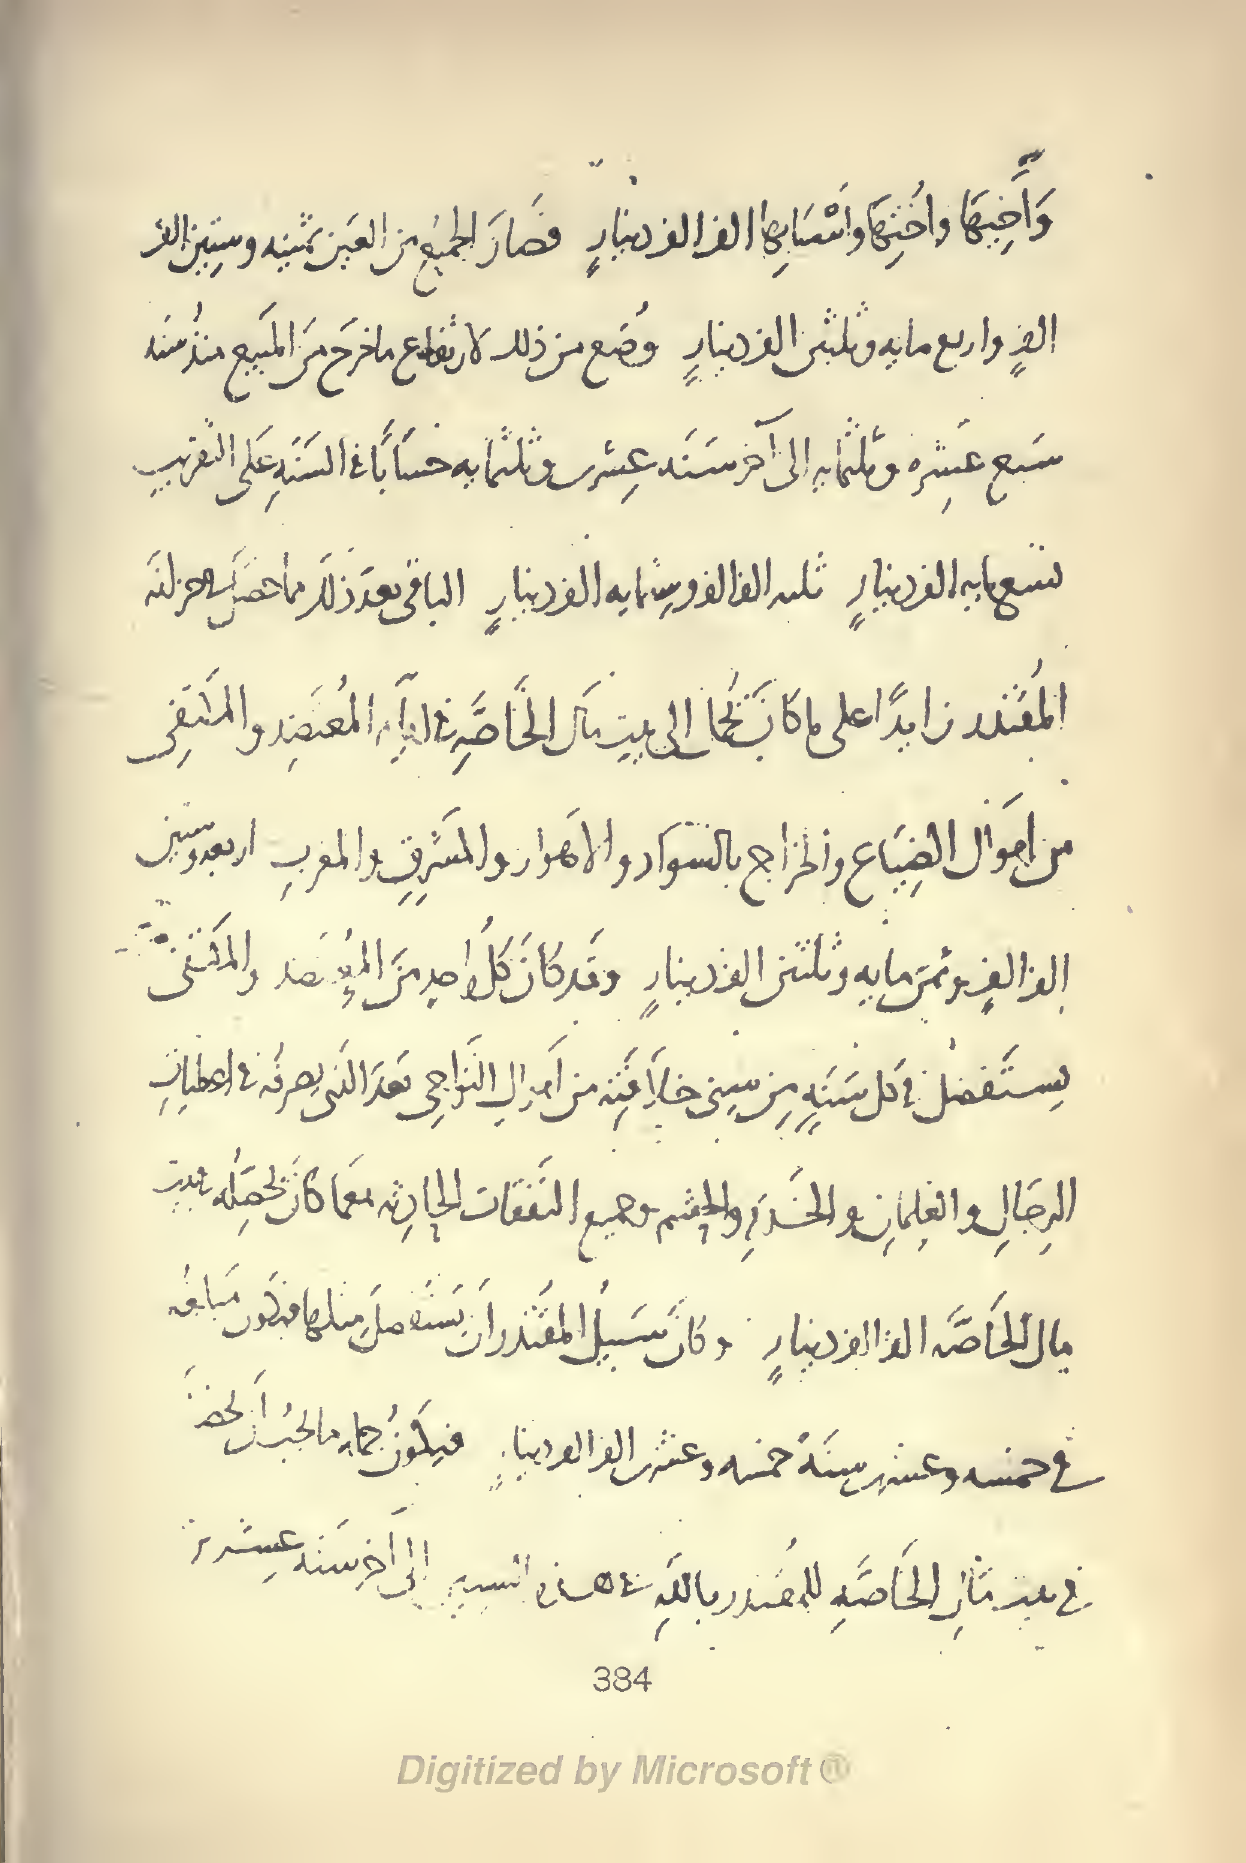 وَأَخِيهَا واُخْتِهَا واَسْبَابِهَا الف الف دينارٍ فصَارَ الجميُع من العَين ثمنيه وسِتِين الف
الفٍ واربع مايه وثلثين الف دينارٍ وُضَع من ذلك لارتفاع ما خرَج مِنَ المَبيع منذُ سَنَه
سَبع عَشِره وثَلثمايه الى آخر سَنَه عِشرين وثلثمايه حسَابًا في السَنَهِ عَلى التقريبِ
تسعمايه الف دينارٍ ثلثه الف الف وستمايه الف دينارٍ الباقى بعدَ ذلك مما حَصَل في خزانَه
المُقتَدر زايدًا على ما كانَ يُحمَل الى بيت مَال الخَاصَّهِ في ايامِ المُعتَضِد والمكتَفِى
من اموَال الضِيَاع والخراج بالسَوَاد والاهواز والمَشرِقِ والمغربِ اربعه وستين
الف الفٍ وثمنَ مايه وثلثين الف دينارٍ وقَد كانَ كلُ واحدٍ منَ المُعتَضد والمكتَفى
يستَفضلُ في كل سَنَهٍ مِن سِنى خلافَتِه من اموالِ النَواحِى بَعدَ الذى يصرفُه في اعطياتِ
الرِجَالِ والغِلمانِ والخَدَمِ والحَشَم وجميع النَفَقات الحادِثه مَعمَا كانَ يُحَصِّلُه في بيت
مال الخَاصَّه الف الف دينارٍ وكانَ سَبِيلُ المقتَدر أن يَستَفضلَ مثلها فيكون مَبلغُه
في خمسه وعشرين سنَةً خمسه وعشرين الف الف دينارٍ فيكَونُ جمله ما يجبُ أن يحصل
في بيت مَالِ الخَاصَّهِ للمُقتدر باللَهِ في هذه السنين الى آخر سَنَه عِشرين
384
Digitized by Microsoft ®